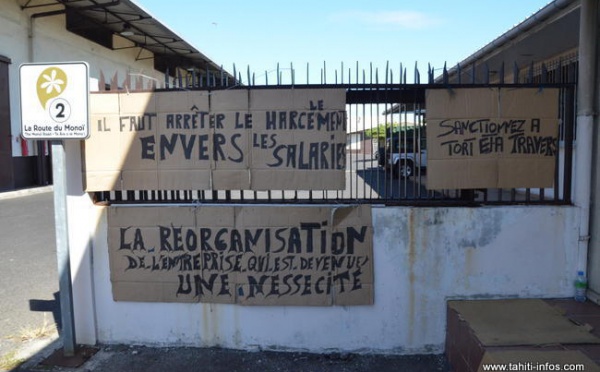 2
La Route du Monoï
IL FAUT ARRÊTER LE HARCÈMENT
LE
ENVERS LES SALARIÉS
SANCTIONNEZ A
TORT Et A TRAVERS
LA RÉORGANISATION
DE L'ENTREPRISE QUI EST DEVENUE
UNE NESSECITÉ
www.tahiti-infos.com